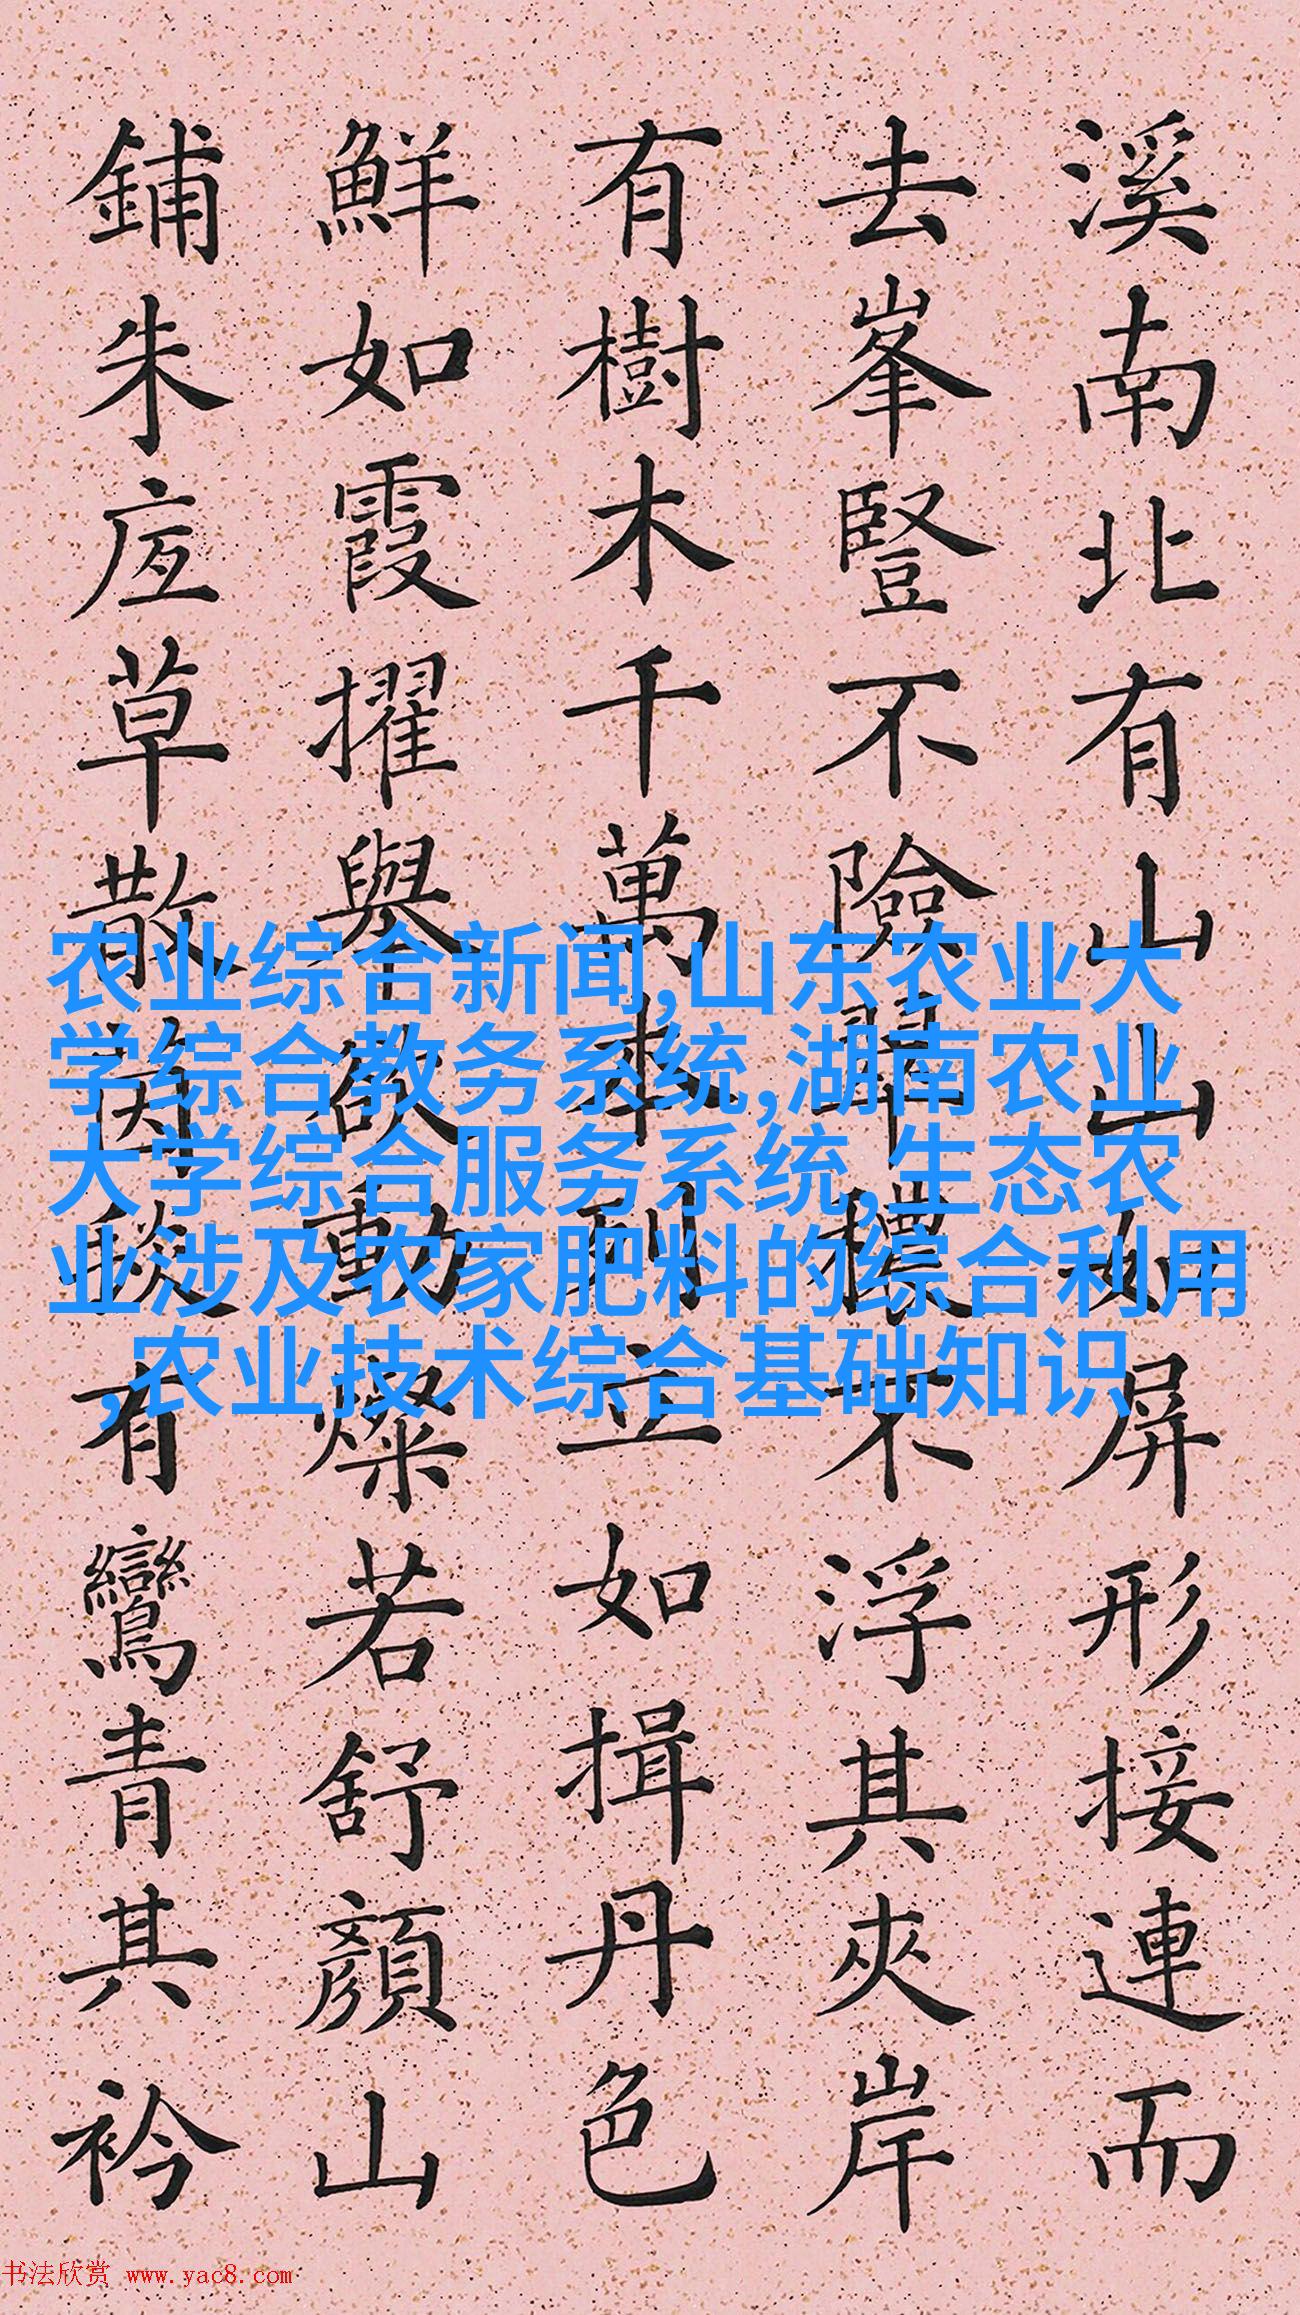 溪南北有山山如屏形接連而
去峯豎不險翠穠不浮其夾岸
有樹木千萬本列立如揖丹色
鮮如霞擢舉欲動燦若舒顏山
鋪朱底草散茵毯有鸞青其衿
农业综合新闻,山东农业大
学综合教务系统,湖南农业
大学综合服务系统,生态农
业涉及农家肥料的综合利用
,农业技术综合基础知识
书法欣赏 www.yac8.com